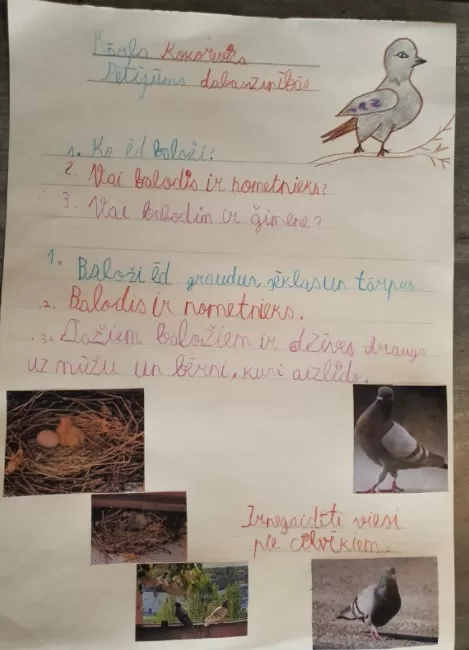 Kārlis Kokorevičs
Pētījums dabaszinībās
1. Ko ēd baloži?
2. Vai balodis ir nometnieks?
3. Vai balodim ir ģimene?
1. Baloži ēd graudus, sēklas un tārpus
2. Balodis ir nometnieks.
3. Dažiem baložiem ir dzīves draugs
uz mūžu un bērni, kuri aizlido.
Ir negaidīti viesi
pie cilvēkiem.